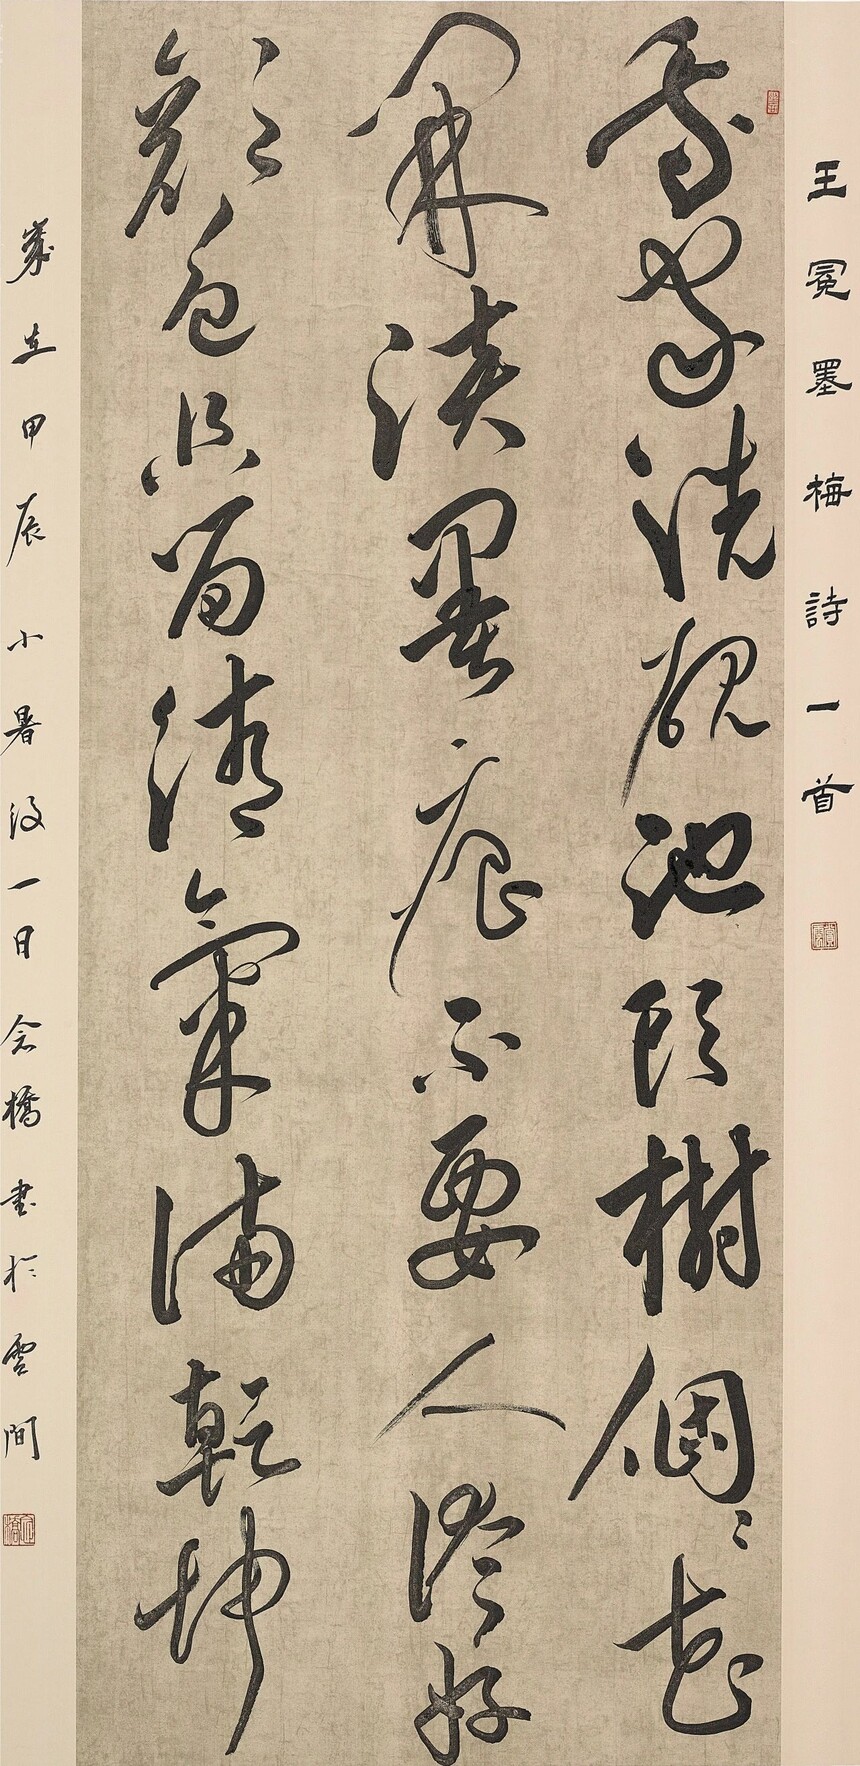 王冕墨梅詩一首
我家洗硯池頭樹個〻花
開淡墨痕不要人誇好
顏色只留清氣滿乾坤
歲在甲辰小暑後一日念橋書於雲間